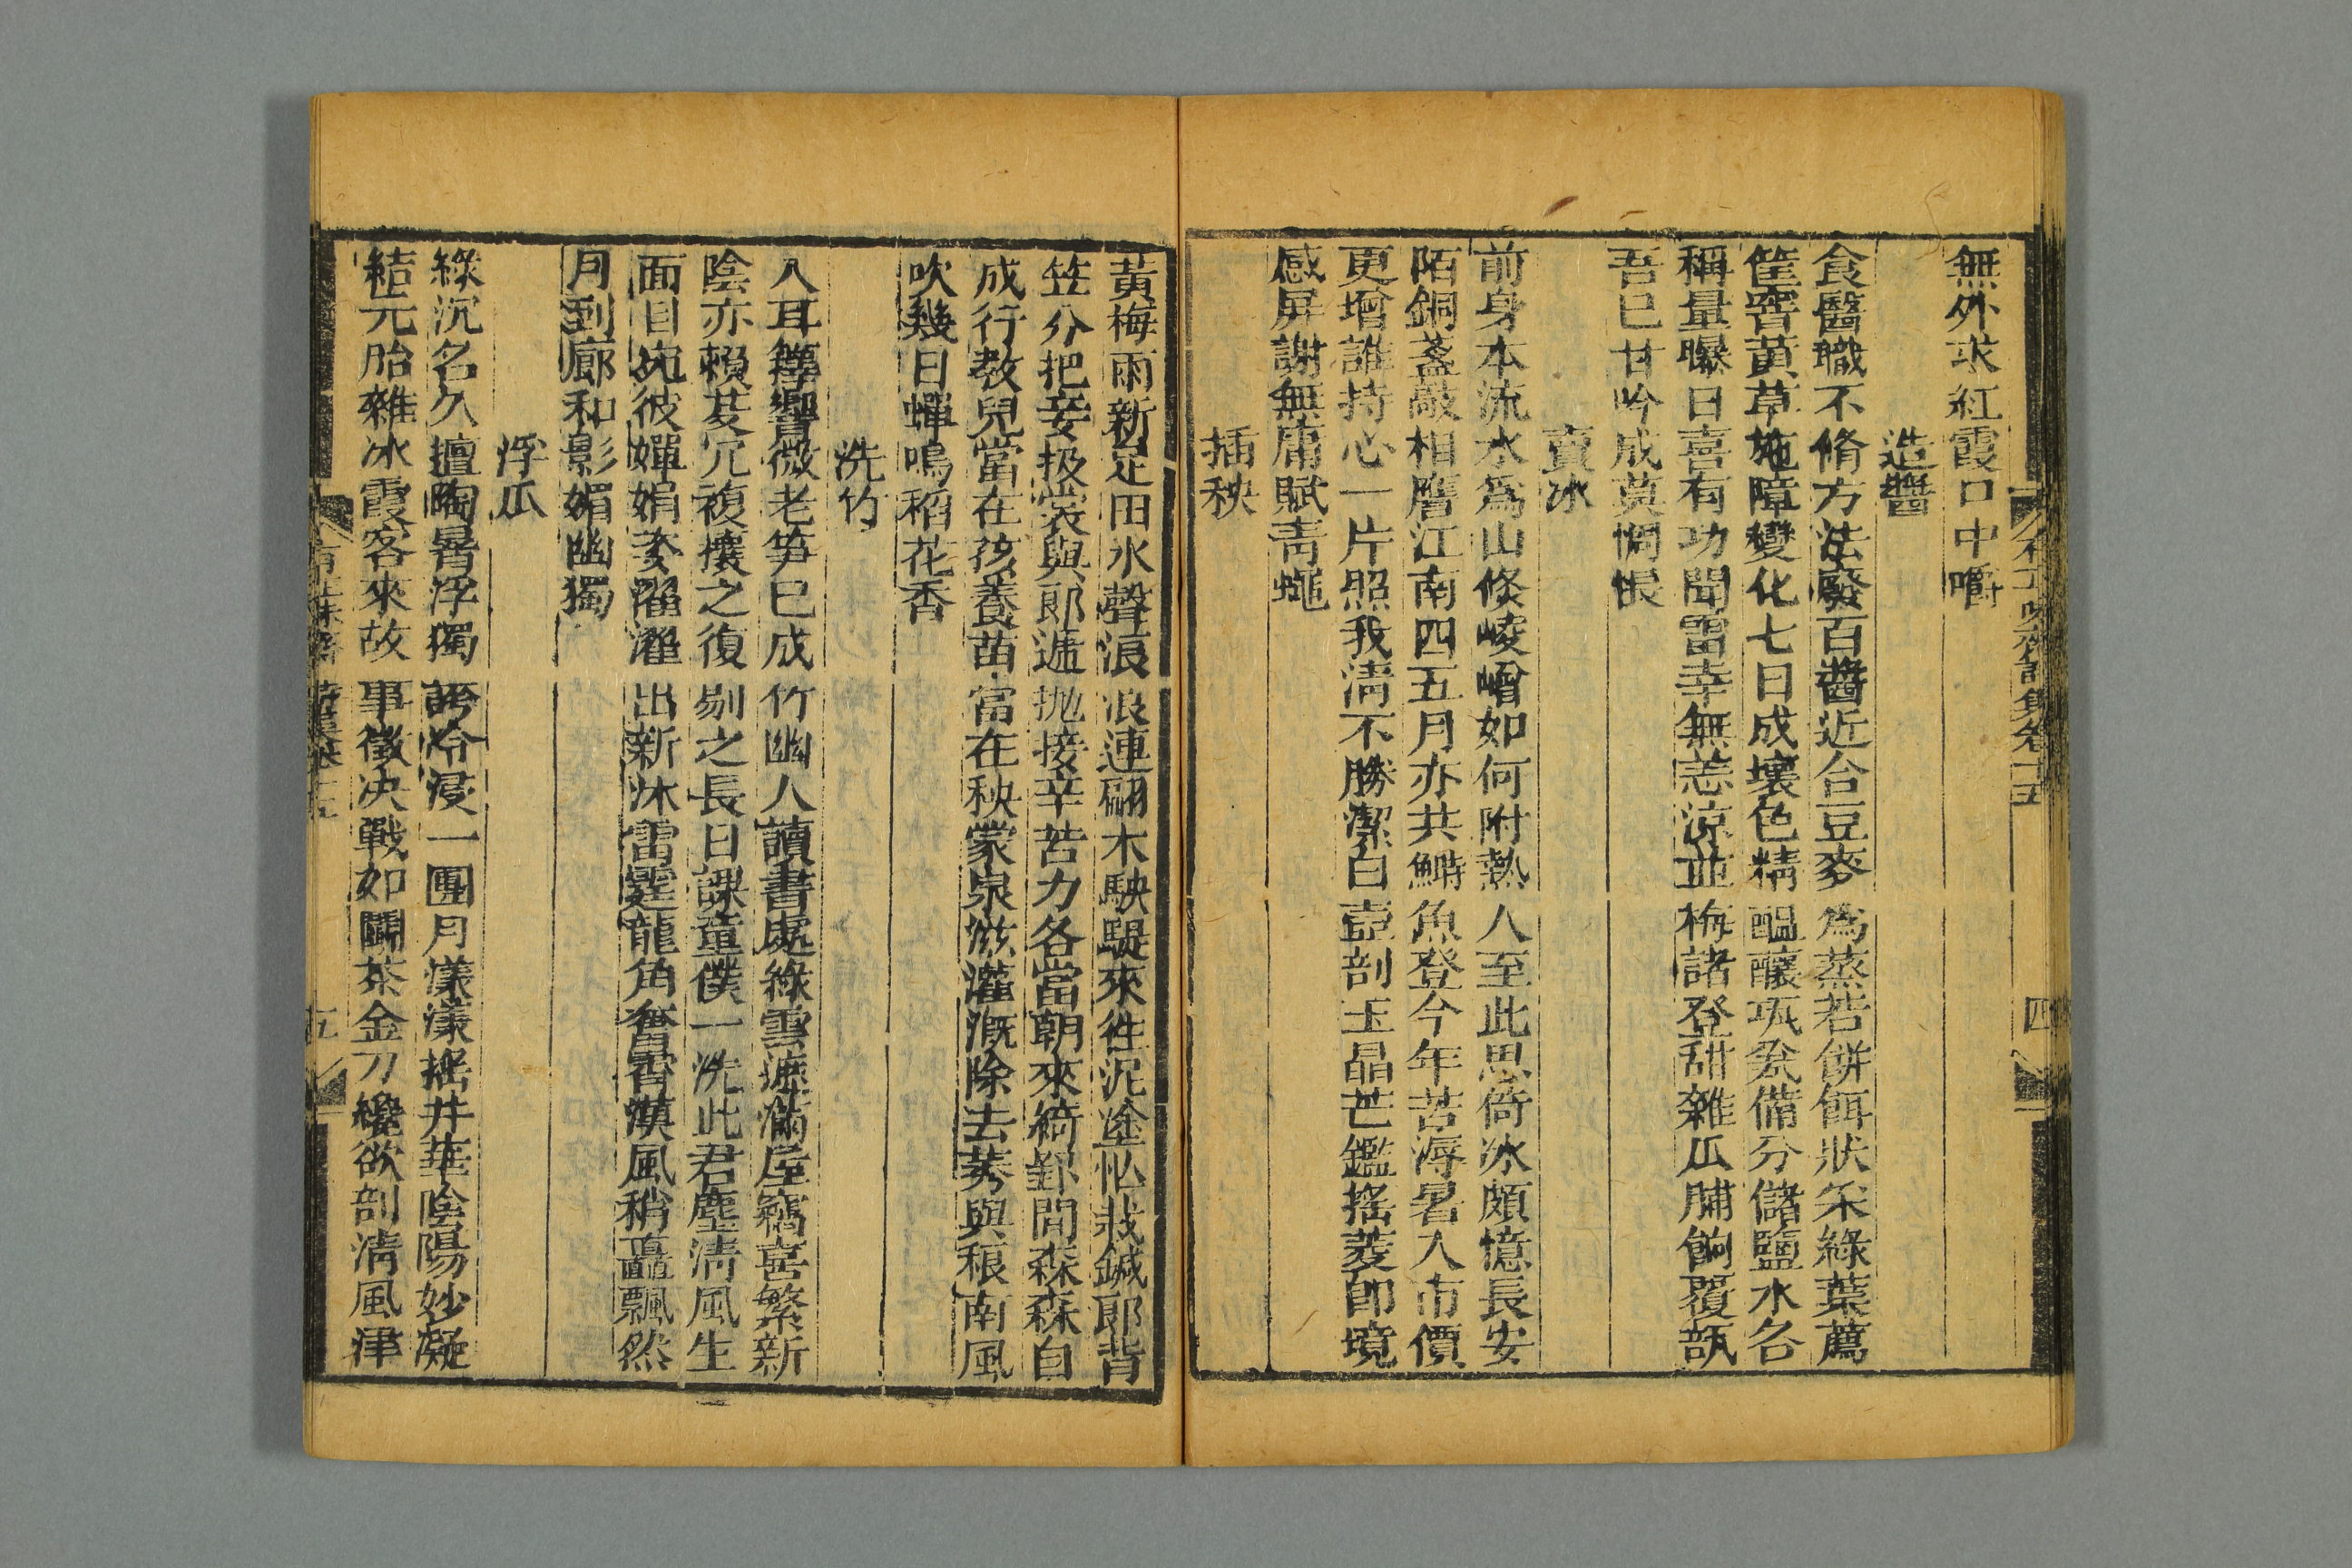 無外求紅霞口中嚼
造醬
食醫職不脩方法廢百醬近合豆麥為蒸若餅餌狀采綠葉薦
筐窨黃草施障變化七日成壞色精醞釀瓨瓮備分儲鹽水各
稱量曝日喜有功聞雷幸無恙涼並梅諸登甜雜瓜脯餉覆瓿
吾已甘吟成莫惆悵
賣冰
前身本流水為山倐崚嶒如何附熱人至此思倚冰頗憶長安
陌銅盞敲相譍江南四五月亦共鰣魚登今年苦溽暑入市價
更增誰持心一片照我淸不勝潔白壺剖玉晶芒鑑搖菱卽境
感屏謝無庸賦靑蠅
插秧
黃梅雨新足田水聲浪浪連翩木駃騠來往泥塗忙栽鍼郞背
笠分把妾扱裳與郞遞拋接辛苦力各當朝來綺罫間森森自
成行敎兒當在孩養苗當在秧蒙泉滋灌溉除去莠與稂南風
吹幾日蟬鳴稻花香
洗竹
入耳籜響微老笋已成竹幽人讀書處綠雲遮滿屋竊喜繁新
陰亦賴芟冗複攘之復剔之長日課童僕一洗此君塵淸風生
面目宛彼嬋娟姿濯濯出新沐雷霆龍角奮霄漢風稍矗飄然
月到廊和影媚幽獨
浮瓜
綠沉名久擅陶晷浮獨誇冷浸一團月漾漾搖井華陰陽妙凝
結元胎雜冰霞客來故事徵决戰如鬭茶金刀纔欲剖淸風津
四
五